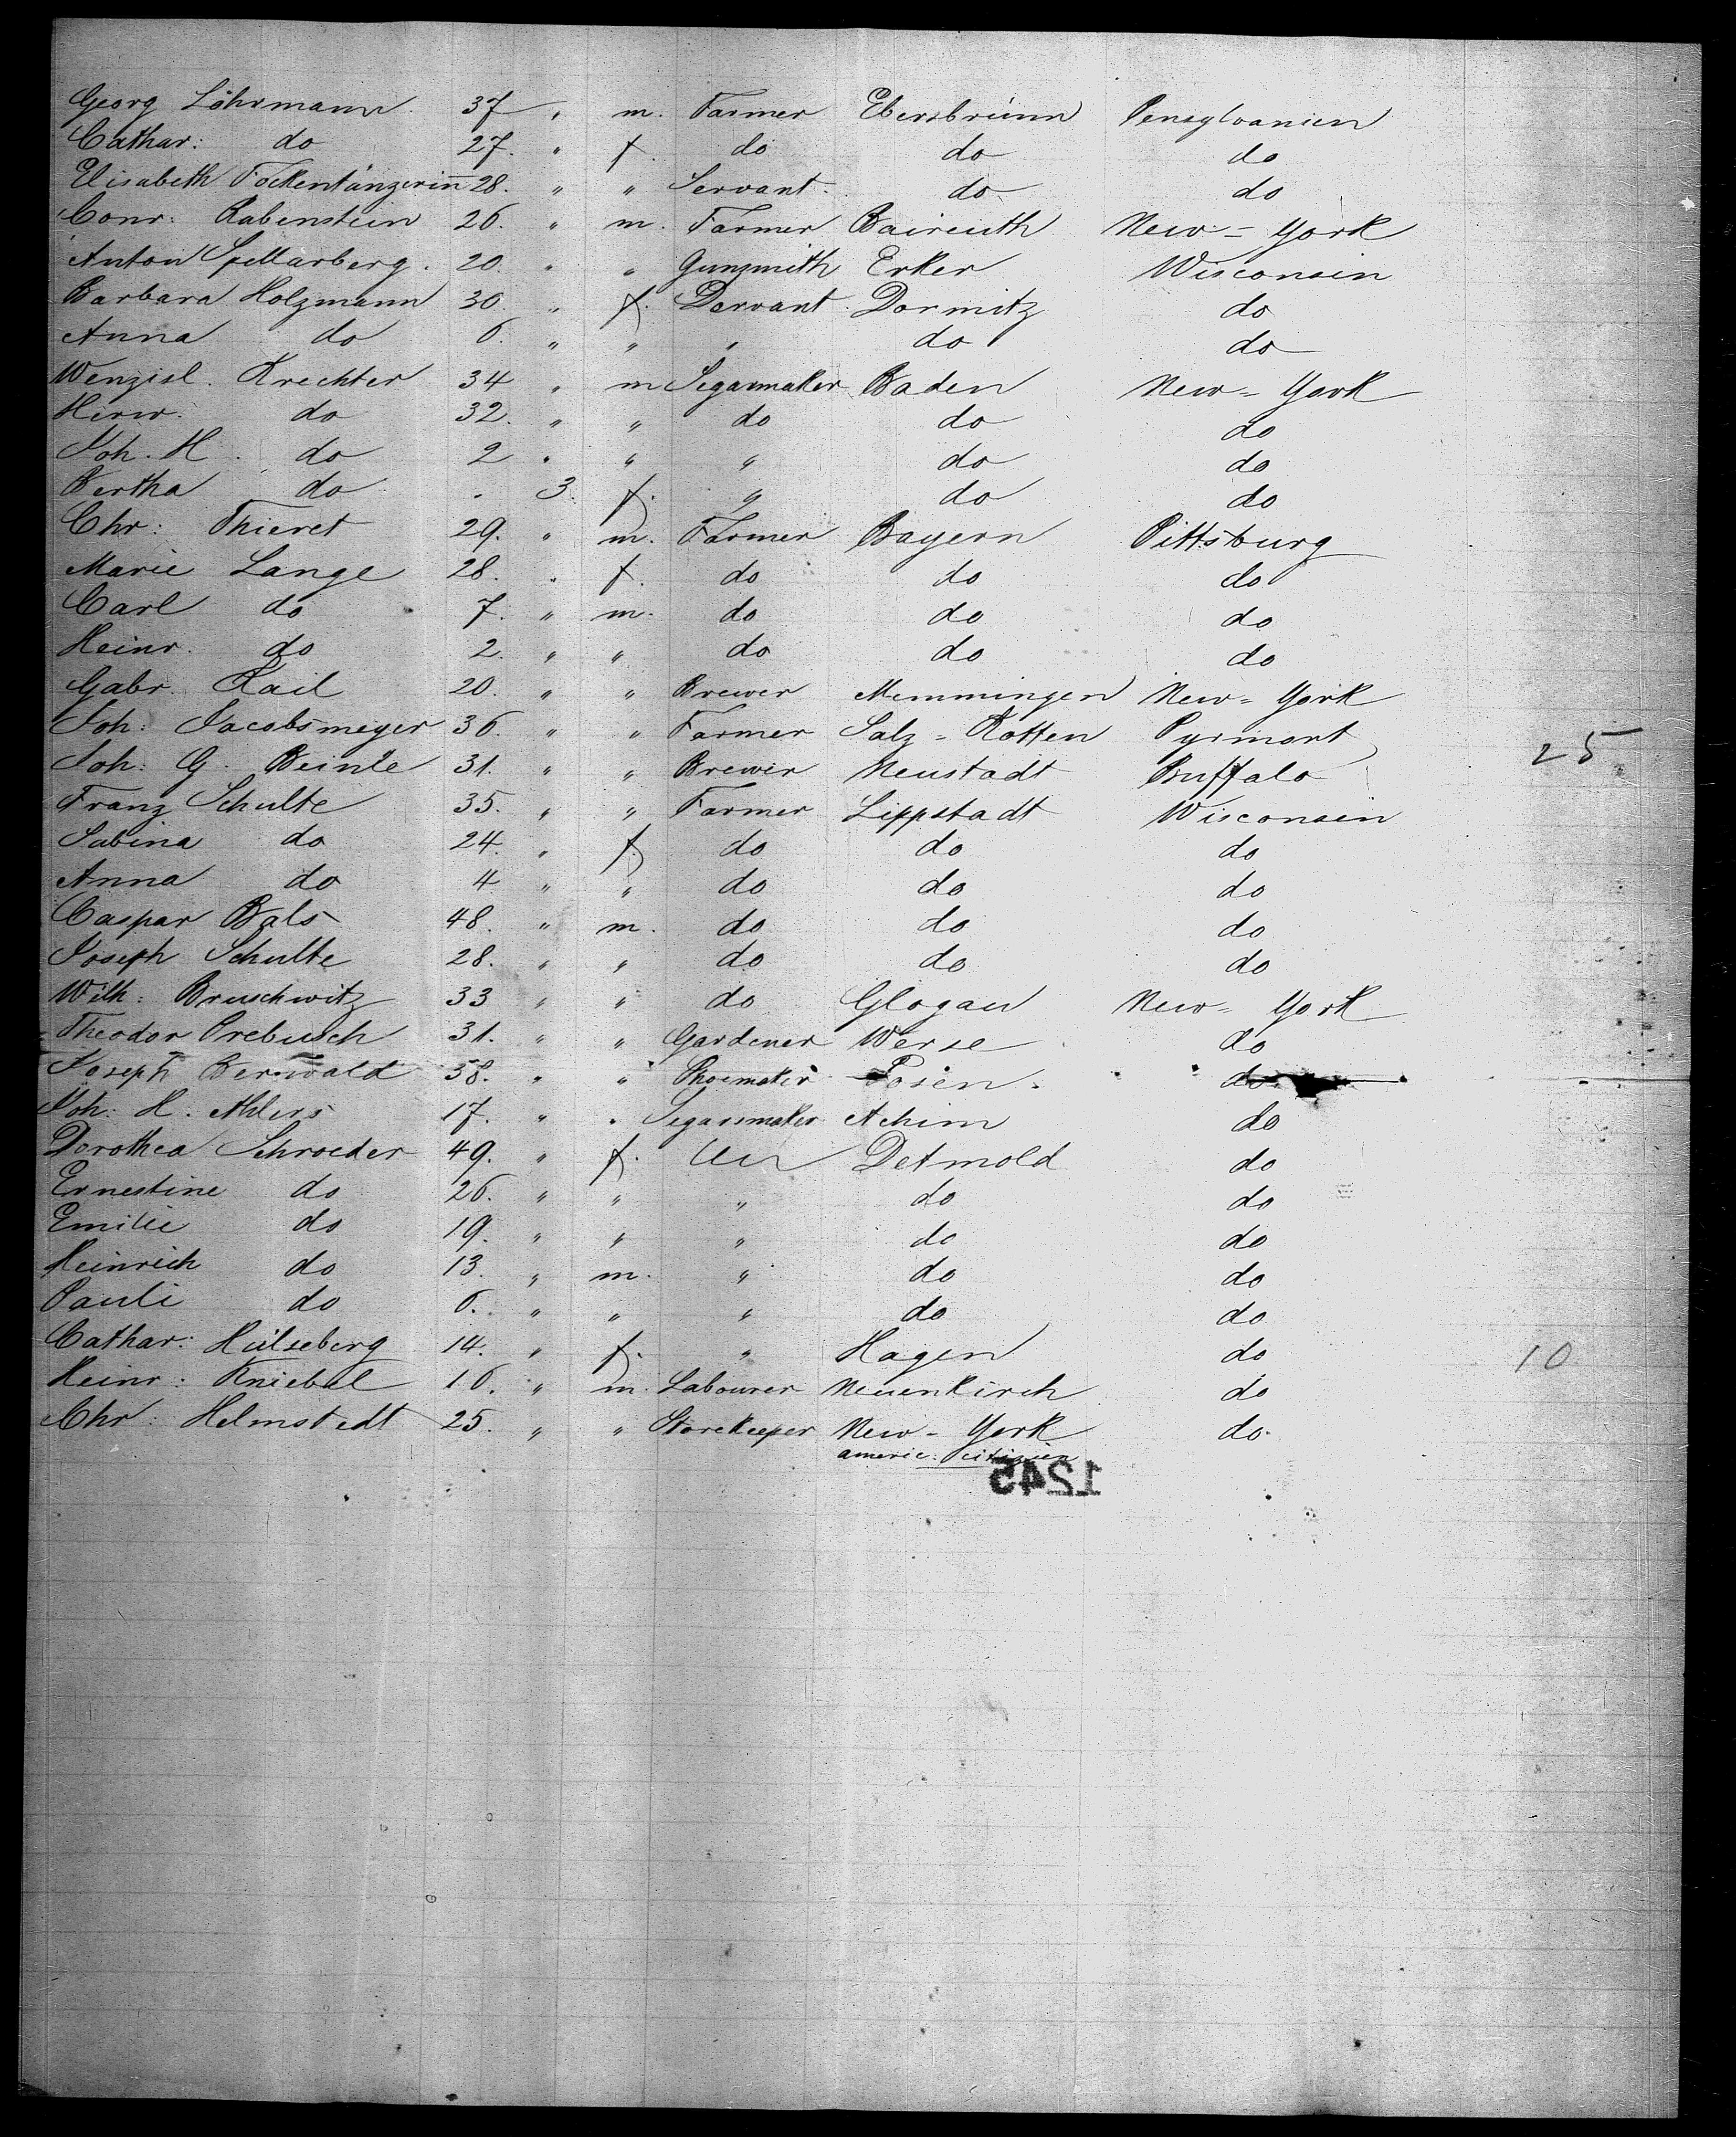 Georg Löhrmann. 37 " m. Farmer Ebersbrünn Pensylvanien
Cathar: do 27. " f. do do do
Elisabeth Fockentänzerin̄ 28. " " Servant. do do
Conr: Rabenstein 26. " m. Farmer Baireuth New-York
Anton Spellarberg. 20. " " Gunsmith Erker Wisconsin
Barbara Holzmann 30 " f. Servant Dormitz do
Anna do 6. " " " do do
Wenzisl. Krechter 34 " m Segarmaker Baden New-York
Hirw. do 32. " " do do do
Joh. H. do 2 " " " do do
Bertha do . 3. f. " do do
Chr: Thieret 29. " m. Farmer Bayern Pittsburg
Marie Lange 28. " f. do do do
Carl do 7. " m. do do do
Heinr. do 2. " " do do do
Gabr. Kail 20. " " Brewer Memmingen New-York
Joh: Jacobsmeyer 36. " " Farmer Salz-Kotten Pyrmont
Joh: G. Beinle 31. " " Brewer Neustadt Buffalo 25
Franz Schulte 35. " " Farmer Lippstadt Wisconsin
Sabina do 24. " f. do do do
Anna do 4 " " do do do
Caspar Bals 48. " m. do do do
Joseph Schulte 28. " " do do do
Wilh: Bruschwitz 33 " " do Glogau New-York
Theodor Prebusch 31. " " Gardener Werse do
Joseph Berwald 38. " " Shoemaker Posen. do
Joh: H. Ahlers 17. " " Segarrmaker Achim do
Dorothea Schroeder 49. " f. Detmold do
Ernestine do 26. " " " do do
Emilie do 19. " " " do do
Heinrich do 13. " m. " do do
Pauli do 6. " " " do do
Cathar: Hülseberg 14. " f. " Hagen do 10
Heinr: Kniebel 16. " m. Labourer Neuenkirch do
Chr: Helmstedt 25. " " Storekeeper New-York do.
americ: citizien
1245